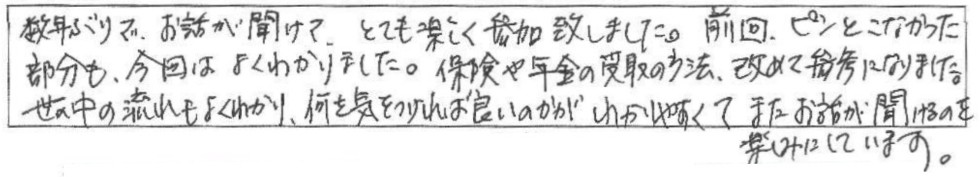 数年ぶりで、お話が聞けて、とても楽しく参加致しました。前回、ピンとこなかった
部分も、今回はよくわかりました。保険や年金の受取の方法、改めて参考になりました。
世の中の流れもよくわかり、何を気をつければ良いのかがわかりやすくてまたお話が聞けるのを
楽しみにしています。